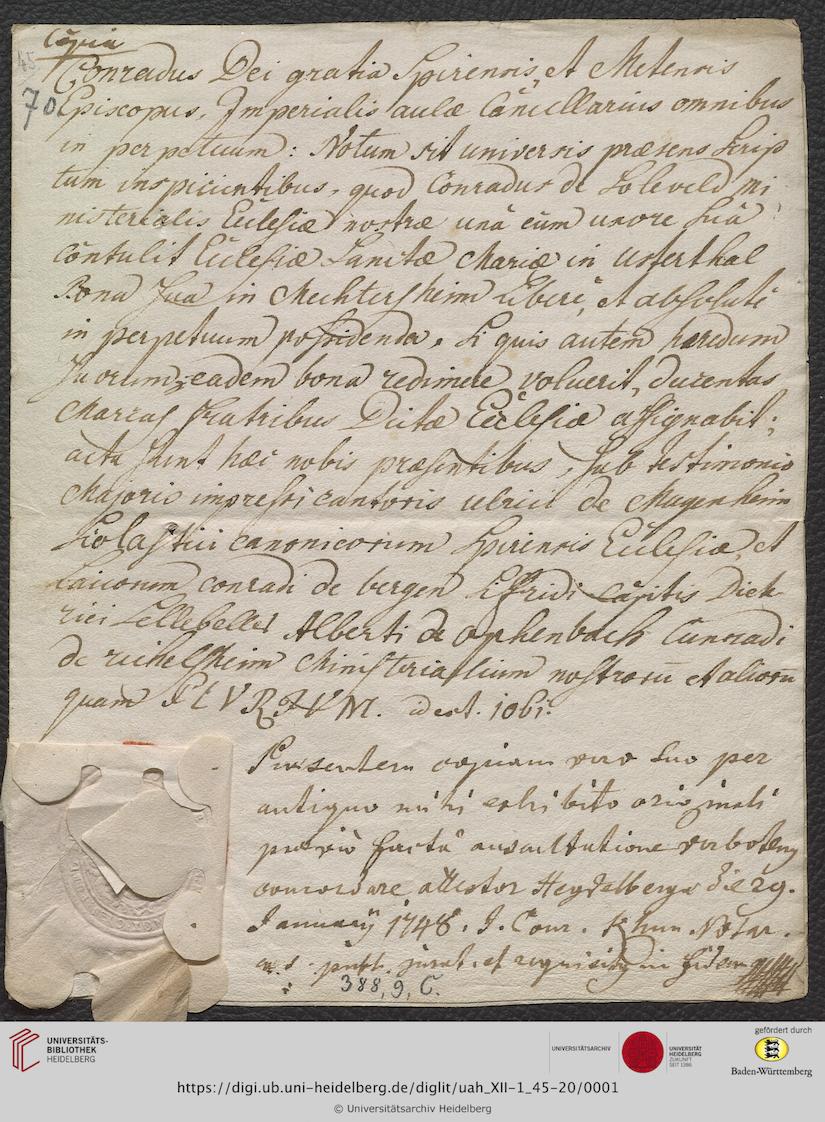 Copia
45
70
Conradus Dei gratia Spirensis et Metensis
Episcopus, Imperialis aulæ Cancellarius omnibus
in perpetuum: Notum sit universis præsens Scrip
tum inspicientibus, quod Conradus de Soleveld mi
nisterialis Ecclesiæ nostræ unâ cum uxore Suâ
Contulit Ecclesiæ Sanctæ Mariæ in Usserthal
Bona Sua in Mechtersheim liberè, et absolutè
in perpetuum possidenda. Si quis autem hæredum
Suorum, eadem bona redimere voluerit, ducentas
Marcas fratribus Dictæ Ecclesiæ assignabit;
acta Sunt hæc nobis præsentibus, Sub testimonio
Majoris impressi cantoris ulrici de Magenheim
Scolastici canonicorum Spirensis Ecclesiæ, et
Laicorum conradi de bergen Effridi capitis Diet
rici Lellebelles Alberti de ophenbach Cunradi
de richelsheim Ministerialium nostrorū et aliorū
quam
id est. 1061.
Præsentem copiam vero suo per
antiquo mihi exhibito originali
prævia factâ auscultatione verbotenus
concordare attestor Heydelbergæ die 29.
January 1748. J. Conr. Khun Notar.
publ. jurat. et requisitus in fidem
388,9,C.
UNIVERSITÄTS-
BIBLIOTHEK
HEIDELBERG
UNIVERSITÄTSARCHIV
UNIVERSITÄT
HEIDELBERG
ZUKUNFT
SEIT 1386
gefördert durch
Baden-Württemberg
https://digi.ub.uni-heidelberg.de/diglit/uah_XII-1_45-20/0001
© Universitätsarchiv Heidelberg